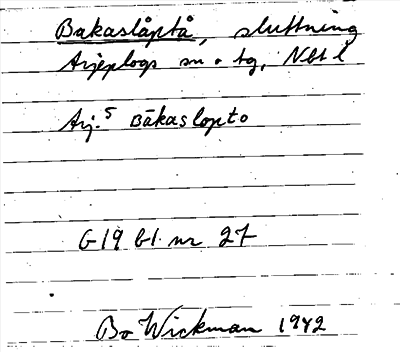 Bakaslåptå, sluttning
Arjeplogs sn o tg, Nbt l
Arj.5 Bākaslopto
G19 bl. nr 27
Bo Wickman 1942